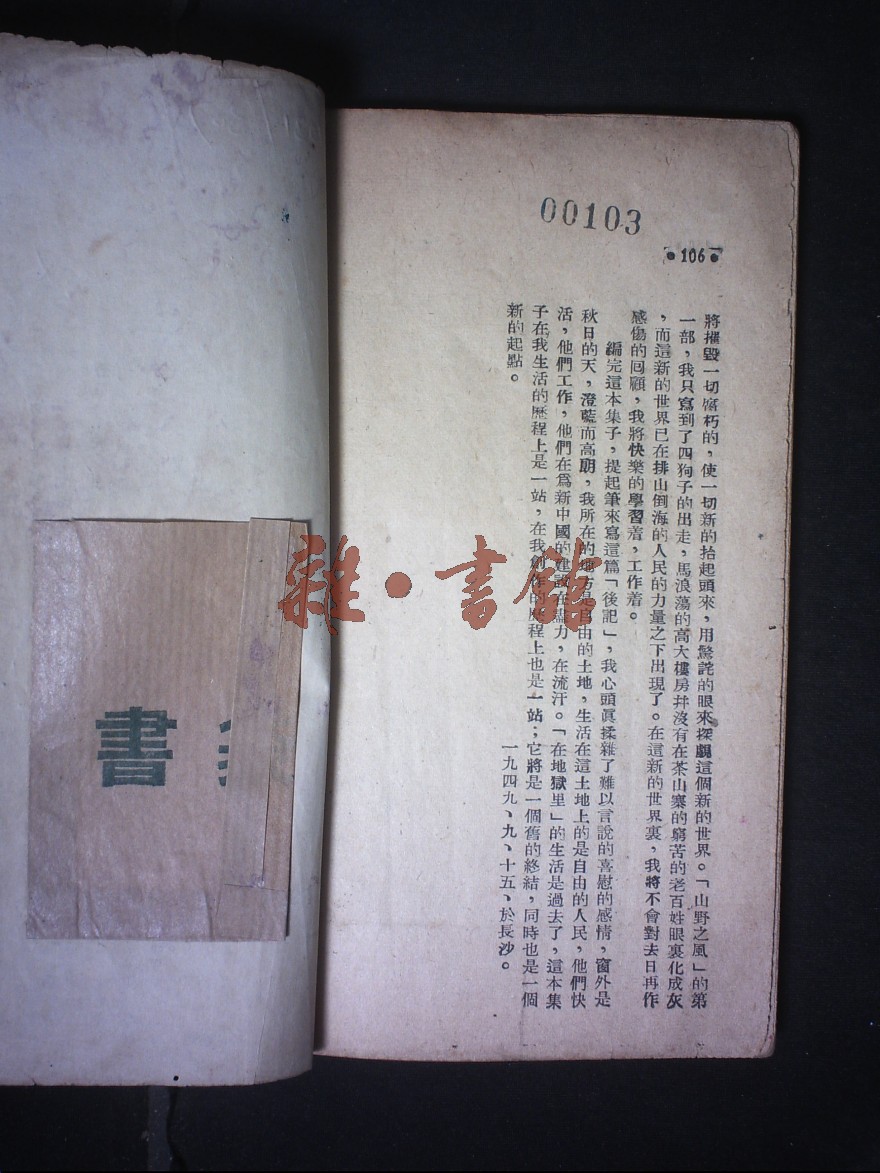 00103
•106•
將摧毀一切腐朽的，使一切新的抬起頭來，用驚詫的眼來探覷這個新的世界。「山野之風」的第
一部，我只寫到了四狗子的出走，馬浪蕩的高大樓房幷沒有在茶山寨的窮苦的老百姓眼裏化成灰
，而這新的世界已在排山倒海的人民的力量之下出現了。在這新的世界裏，我將不會對去日再作
感傷的回顧，我將快樂的學習着，工作着。
編完這本集子，提起筆來寫這篇「後記」，我心頭眞揉雜了難以言說的喜慰的感情，窗外是
秋日的天，澄藍而高朗，我所在的地方是自由的土地，生活在這土地上的是自由的人民，他們快
活，他們工作，他們在爲新中國的建設在盡力，在流汗。「在地獄里」的生活是過去了，這本集
子在我生活的歷程上是一站，在我創作的歷程上也是一站；它將是一個舊的終結，同時也是一個
新的起點。
一九四九、九、十五、於長沙。
雜•書館
書